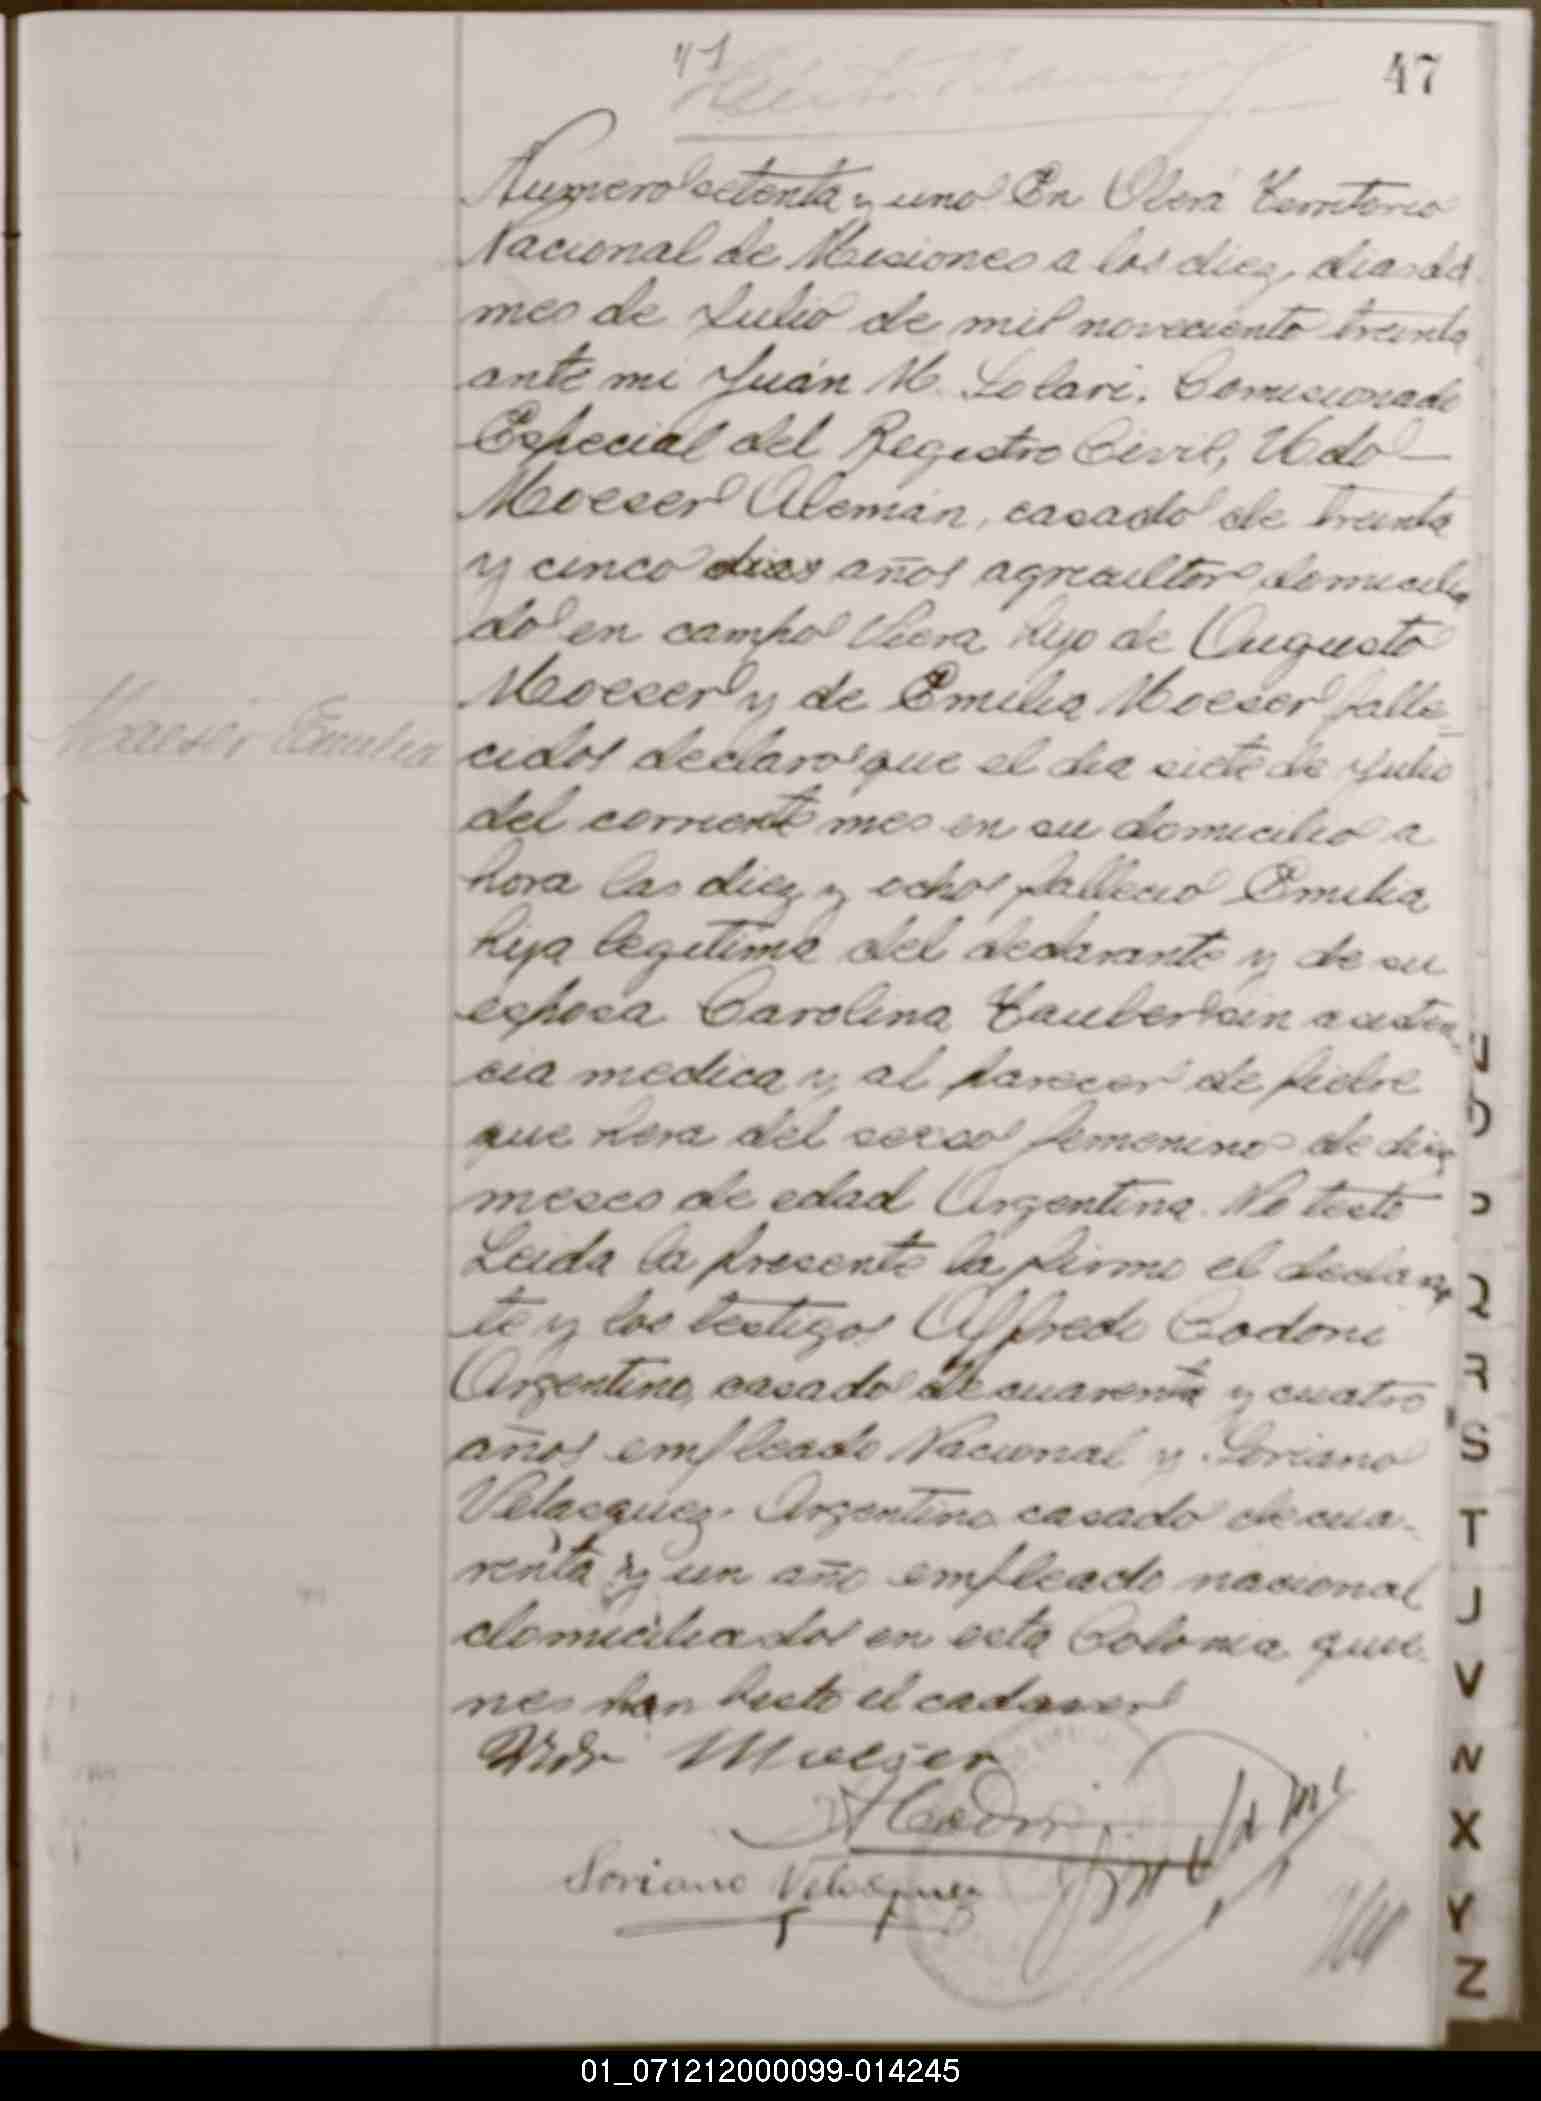 47
71
Numero setenta y uno En Oberá Territorio
Nacional de Misiones a los diez dias del
mes de Julio de mil noveciento treinta
ante mi Juán M. Solari, Comisionado
Especial del Registro Civil, Udo
Moeser Alemán, casado de treinta
y cinco dias años agricultor domicilia
do en campo Viera hijo de Augusto
Moeser y de Emilia Moeser falle=
Maeser Emilia
cidos declaro que el dia siete de Julio
del corriente mes en su domicilio a
hora las diez y ocho fallecio Emilia
hija legitima del declarante y de su
esposa Carolina Tauber sin asisten
cia medica y al parecer de fiebre
que hera del secso femenino de diez
meses de edad Argentina. No testo
Leida la presente la firmo el declaran
te y los testigos Alfredo Codoni
Argentino, casado de cuarenta y cuatro
años empleado Nacional y Soriano
Velasquez. Argentino casado de cua-
renta y un año empleado nacional
domiciliados en esta Colonia quie
nes han bisto el cadaver
Udo Moeser
A Codoni
Soriano Velasquez
O
P
Q
R
S
T
J
V
N
X
Y
Z
01_071212000099-014245